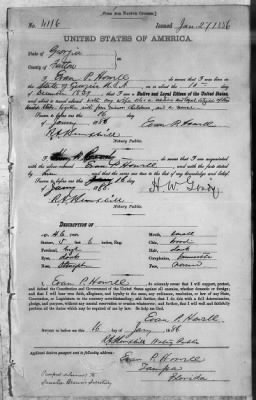 [FORM FOR NATIVE CITIZEN.]
No. 4116 Issued Jan 27/1886
UNITED STATES OF AMERICA.
State of Georgia
County of Fulton
I, Evan P. Howell, do swear that I was born
in the State of Georgia U.S.A. on or about the day
of December 1839; that I am a Native and Loyal Citizen of the United States,
and about to travel abroad with my wife
Sworn to before me this 16 day
of January 1886 Evan P. Howell
Notary Public.
that I am acquainted
with the above named Evan P. Howell and with the facts stated
by him and that the same are true to the best of my knowledge and belief.
Sworn to before me this 16 day
of January 1886. H. W. Grady
Notary Public.
DESCRIPTION OF
Age: 46 years Mouth: small
Stature: 5 feet 6 inches, Eng. Chin:
Forehead: high Hair: dark
Eyes: dark Complexion:
Nose: Face:
I, Evan P. Howell, do solemnly swear that I will support, protect,
and defend the Constitution and Government of the United States against all enemies, whether domestic or foreign;
and that I will bear true faith, allegiance, and loyalty to the same, any ordinance, resolution, or law of any State,
Convention, or Legislature to the contrary notwithstanding; and further, that I do this with a full determination,
pledge, and purpose, without any mental reservation or evasion whatsoever; and further, that I will well and faithfully
perform all the duties which may be required of me by law. So help me God.
Evan P. Howell
Sworn to before me this 16 day Jany 1886
Notary Public
Applicant desires passport to be sent to following address:
Evan P. Howell
Tampa
Florida